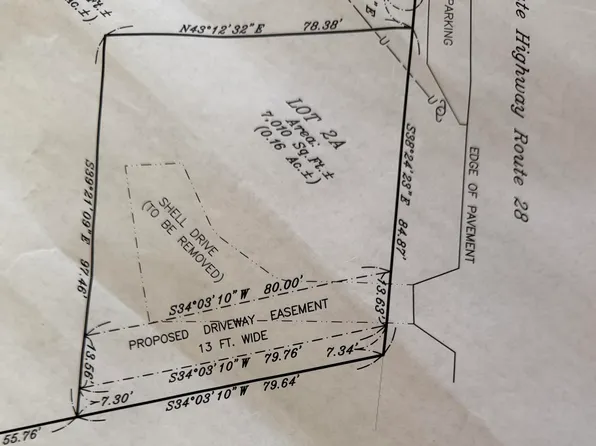 t.±
Ac.±)
N43°12'32"E 78.38'
"E
PARKING
te Highway Route 28
U
U
LOT 2A
Area:
7,010 Sq.Ft.±
(0.16 Ac.±)
S38°24'23"E 84.87'
EDGE OF PAVEMENT
S39°21'09"E 97.46'
SHELL DRIVE
(TO BE REMOVED)
S34°03'10"W 80.00'
13.63'
PROPOSED DRIVEWAY EASEMENT
13 FT. WIDE
13.56'
S34°03'10"W 79.76'
7.34'
7.30'
S34°03'10"W 79.64'
55.76'